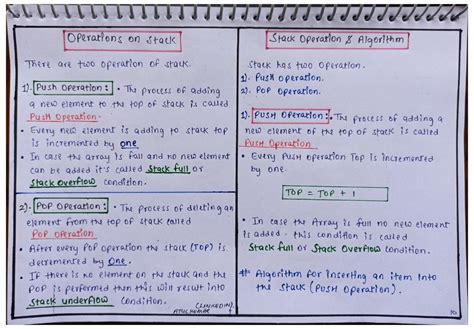 Operations on Stack
There are two operation of stack.
1). Push Operation: • The process of adding
a new element to the top of stack is called
Push Operation.
• Every new element is adding to stack top
is incremented by one.
• In case the array is full and no new element
can be added it's called Stack full or
Stack Overflow condition.
2). POP Operation: • The process of deleting an
element from the top of stack called
POP Operation.
• After every POP operation the stack (TOP) is
decremented by One.
• If there is no element on the stack and the
POP is performed then this will result into
Stack underflow condition.
(LINKEDIN)
ATUL KUMAR
Stack Operation & Algorithm
Stack has two Operation.
1. PUSH Operation.
2. POP Operation.
1). PUSH Operation: • The process of adding a
new element of the top of stack is called
PUSH Operation
• Every PUSH operation Top is incremented
by one.
TOP = TOP + 1
• In case the Array is full no new element
is added - this condition is called
Stack full or Stack Overflow condition.
# Algorithm for inserting an item into
the stack (PUSH Operation).